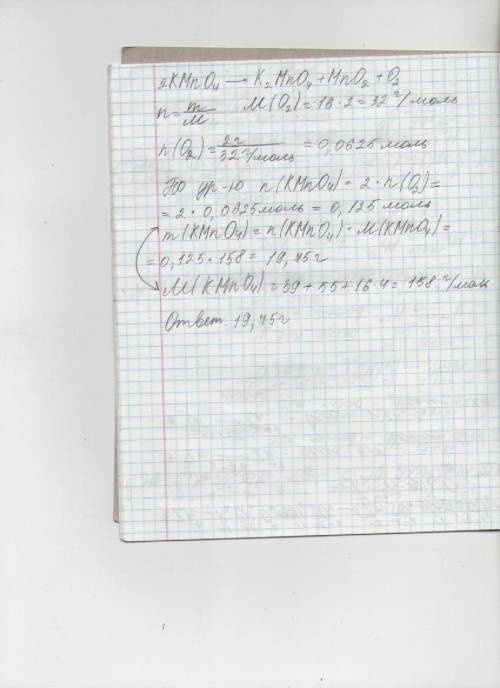 2KMnO₄ → K₂MnO₄ + MnO₂ + O₂
n = m/M M(O₂) = 16·2 = 32 г/моль
n(O₂) = 2г / 32 г/моль = 0,0625 моль
По ур-ю n(KMnO₄) = 2 · n(O₂) =
= 2 · 0,0625 моль = 0,125 моль
m(KMnO₄) = n(KMnO₄) · M(KMnO₄) =
= 0,125 · 158 = 19,75 г
M(KMnO₄) = 39 + 55 + 16·4 = 158 г/моль
Ответ: 19,75 г